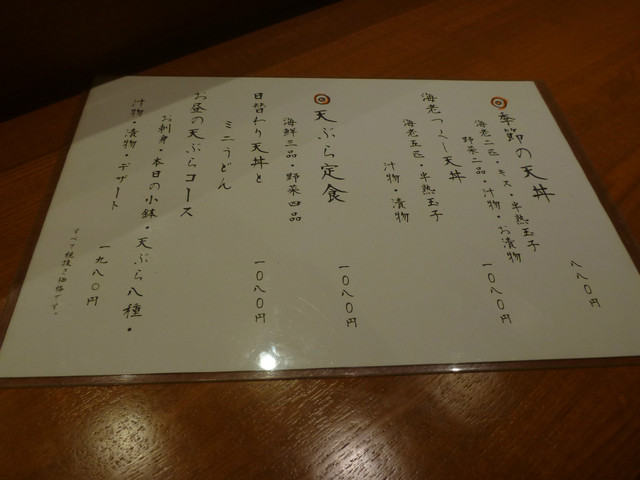 季節の天丼
海老二匹・キス・半熟玉子
野菜二品・汁物・お漬物
八八〇円
海老つくし天丼
海老五匹・半熟玉子
汁物・漬物
一〇八〇円
天ぷら定食
海鮮三品・野菜四品
一〇八〇円
日替わり天丼と
ミニうどん
一〇八〇円
お昼の天ぷらコース
お刺身・本日の小鉢・天ぷら八種・
汁物・漬物・デザート
一九八〇円
すべて税抜き価格です。